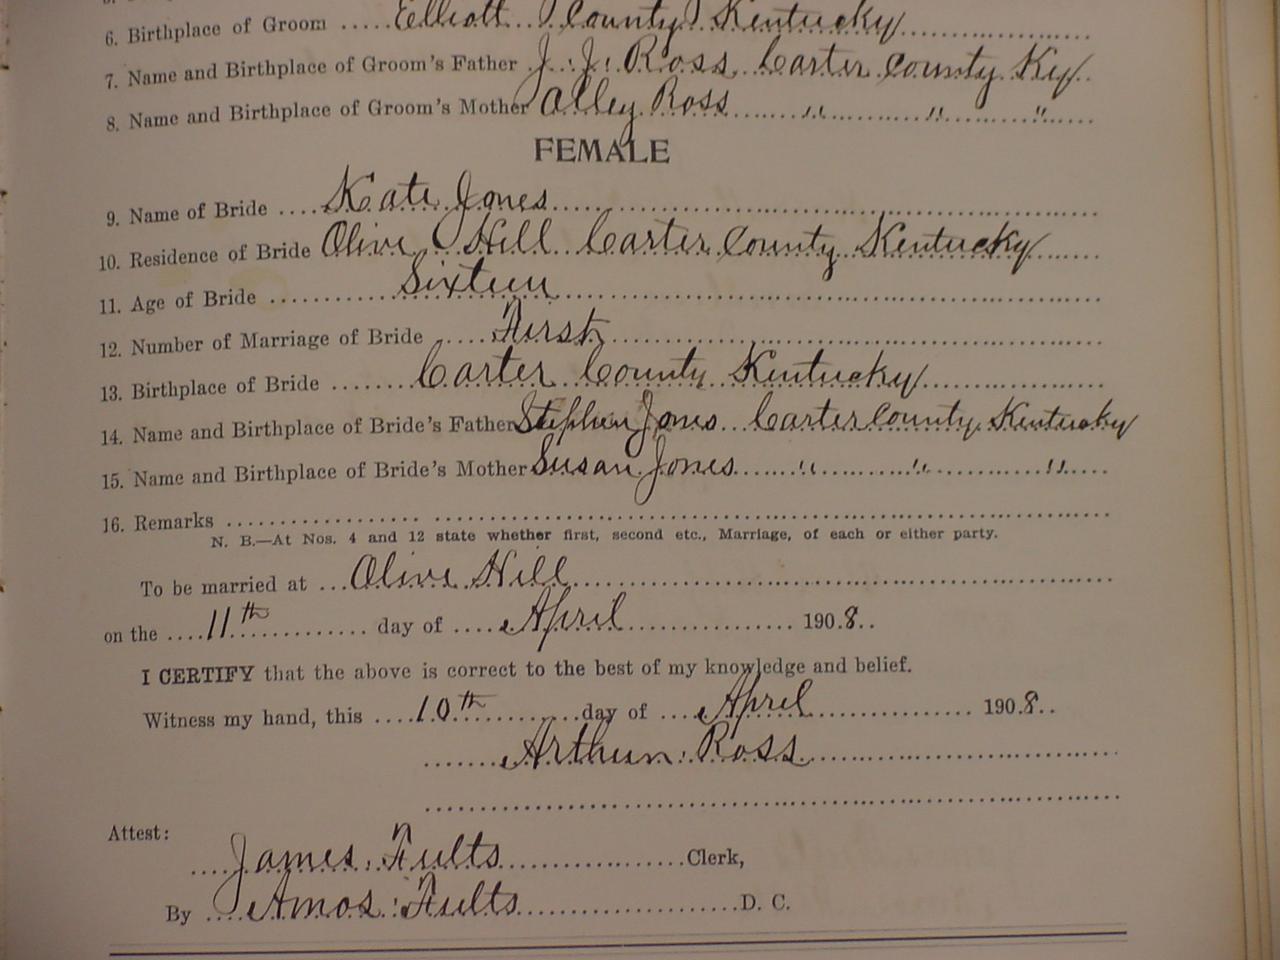 6. Birthplace of Groom ..... Elliott County Kentucky
7. Name and Birthplace of Groom's Father J. J. Ross Carter County Ky.
8. Name and Birthplace of Groom's Mother Alley Ross " " "
FEMALE
9. Name of Bride .... Kate Jones
10. Residence of Bride Olive Hill Carter County Kentucky
11. Age of Bride .......... Sixteen
12. Number of Marriage of Bride ..... First
13. Birthplace of Bride ....... Carter County Kentucky
14. Name and Birthplace of Bride's Father Stephen Jones Carter County Kentucky
15. Name and Birthplace of Bride's Mother Susan Jones " " "
16. Remarks
N. B.—At Nos. 4 and 12 state whether first, second etc., Marriage, of each or either party.
To be married at ... Olive Hill
on the .... 11th day of .... April 1908..
I CERTIFY that the above is correct to the best of my knowledge and belief.
Witness my hand, this .... 10th day of .... April 1908..
Arthur Ross
Attest:
James Fults Clerk,
By .... Amos Fults D. C.